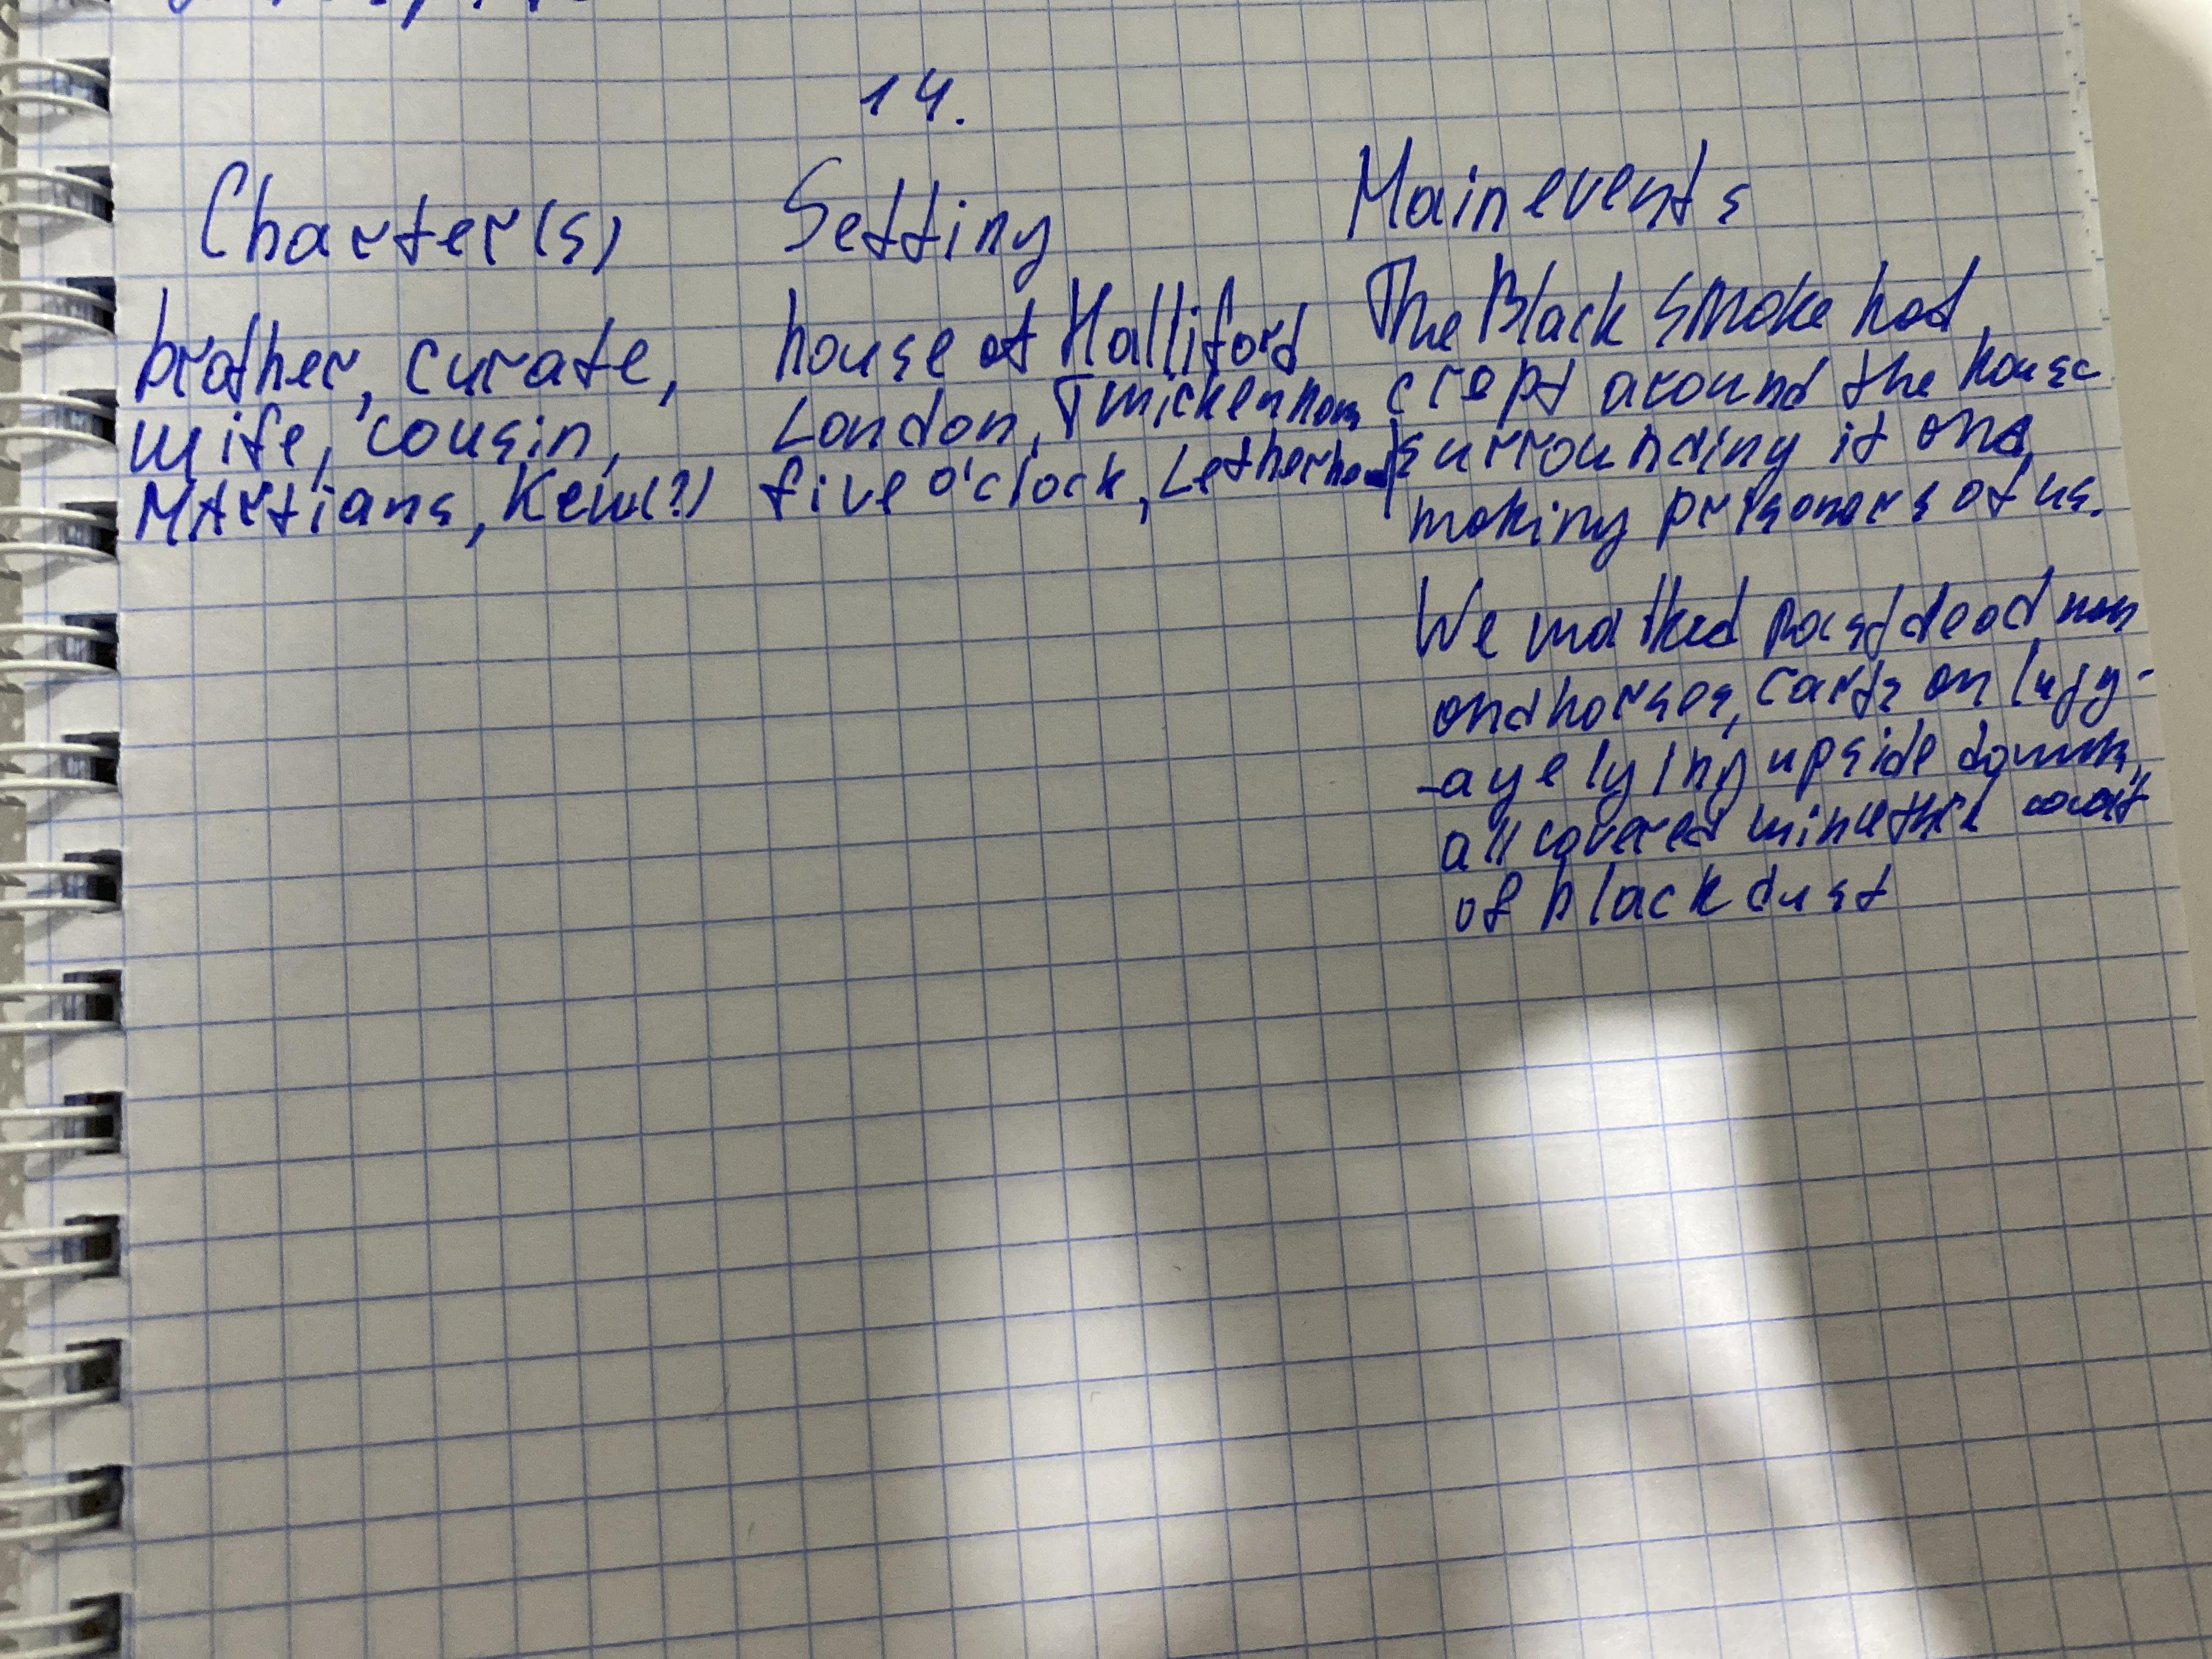 14.
Charter(s)
Setting
Main events
brother, curate,
wife, cousin,
MArtians, Kew(?)
house at Halliford
London, Twickennam
five o'clock, Letherhead
The Black Smoke had
crept around the house
surrounding it and
making prisoners of us.
We walked past dead men
and horses, carts on lugg-
-age lying upside down,
all covered in
of black dust